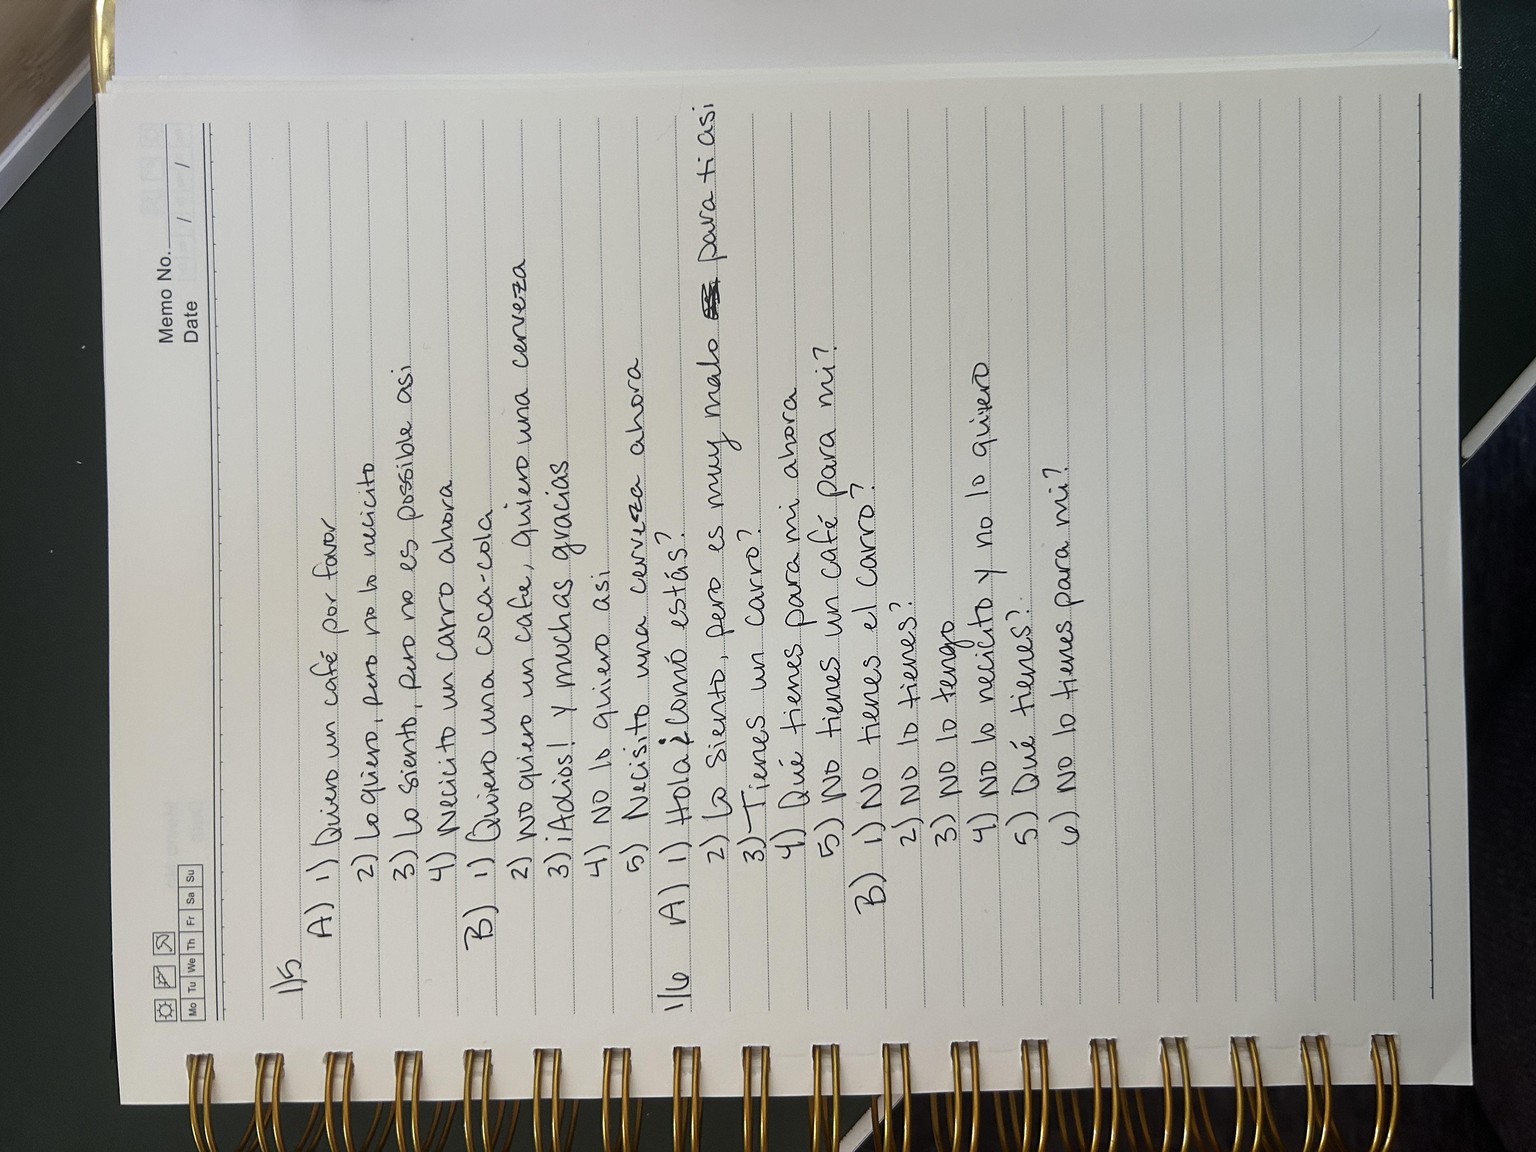 Memo No.
Mo Tu We Th Fr Sa Su
Date / /
1/5
A) 1) Quiero un café por favor
2) Lo quiero, pero no lo necicito
3) Lo siento, pero no es possible asi
4) Necicito un carro ahora
B) 1) Quiero una coca-cola
2) No quiero un cafe, quiero una cerveza
3) ¡Adios! Y muchas gracias
4) No lo quiero asi
5) Necisito una cerveza ahora
1/6 A) 1) Hola ¿Comó estás?
2) Lo siento, pero es muy malo para ti asi
3) Tienes un carro?
4) Qué tienes para mi ahora
5) No tienes un café para mi?
B) 1) No tienes el carro?
2) No lo tienes?
3) No lo tengo
4) No lo necicito y no lo quiero
5) Qué tienes?
6) No lo tienes para mi?